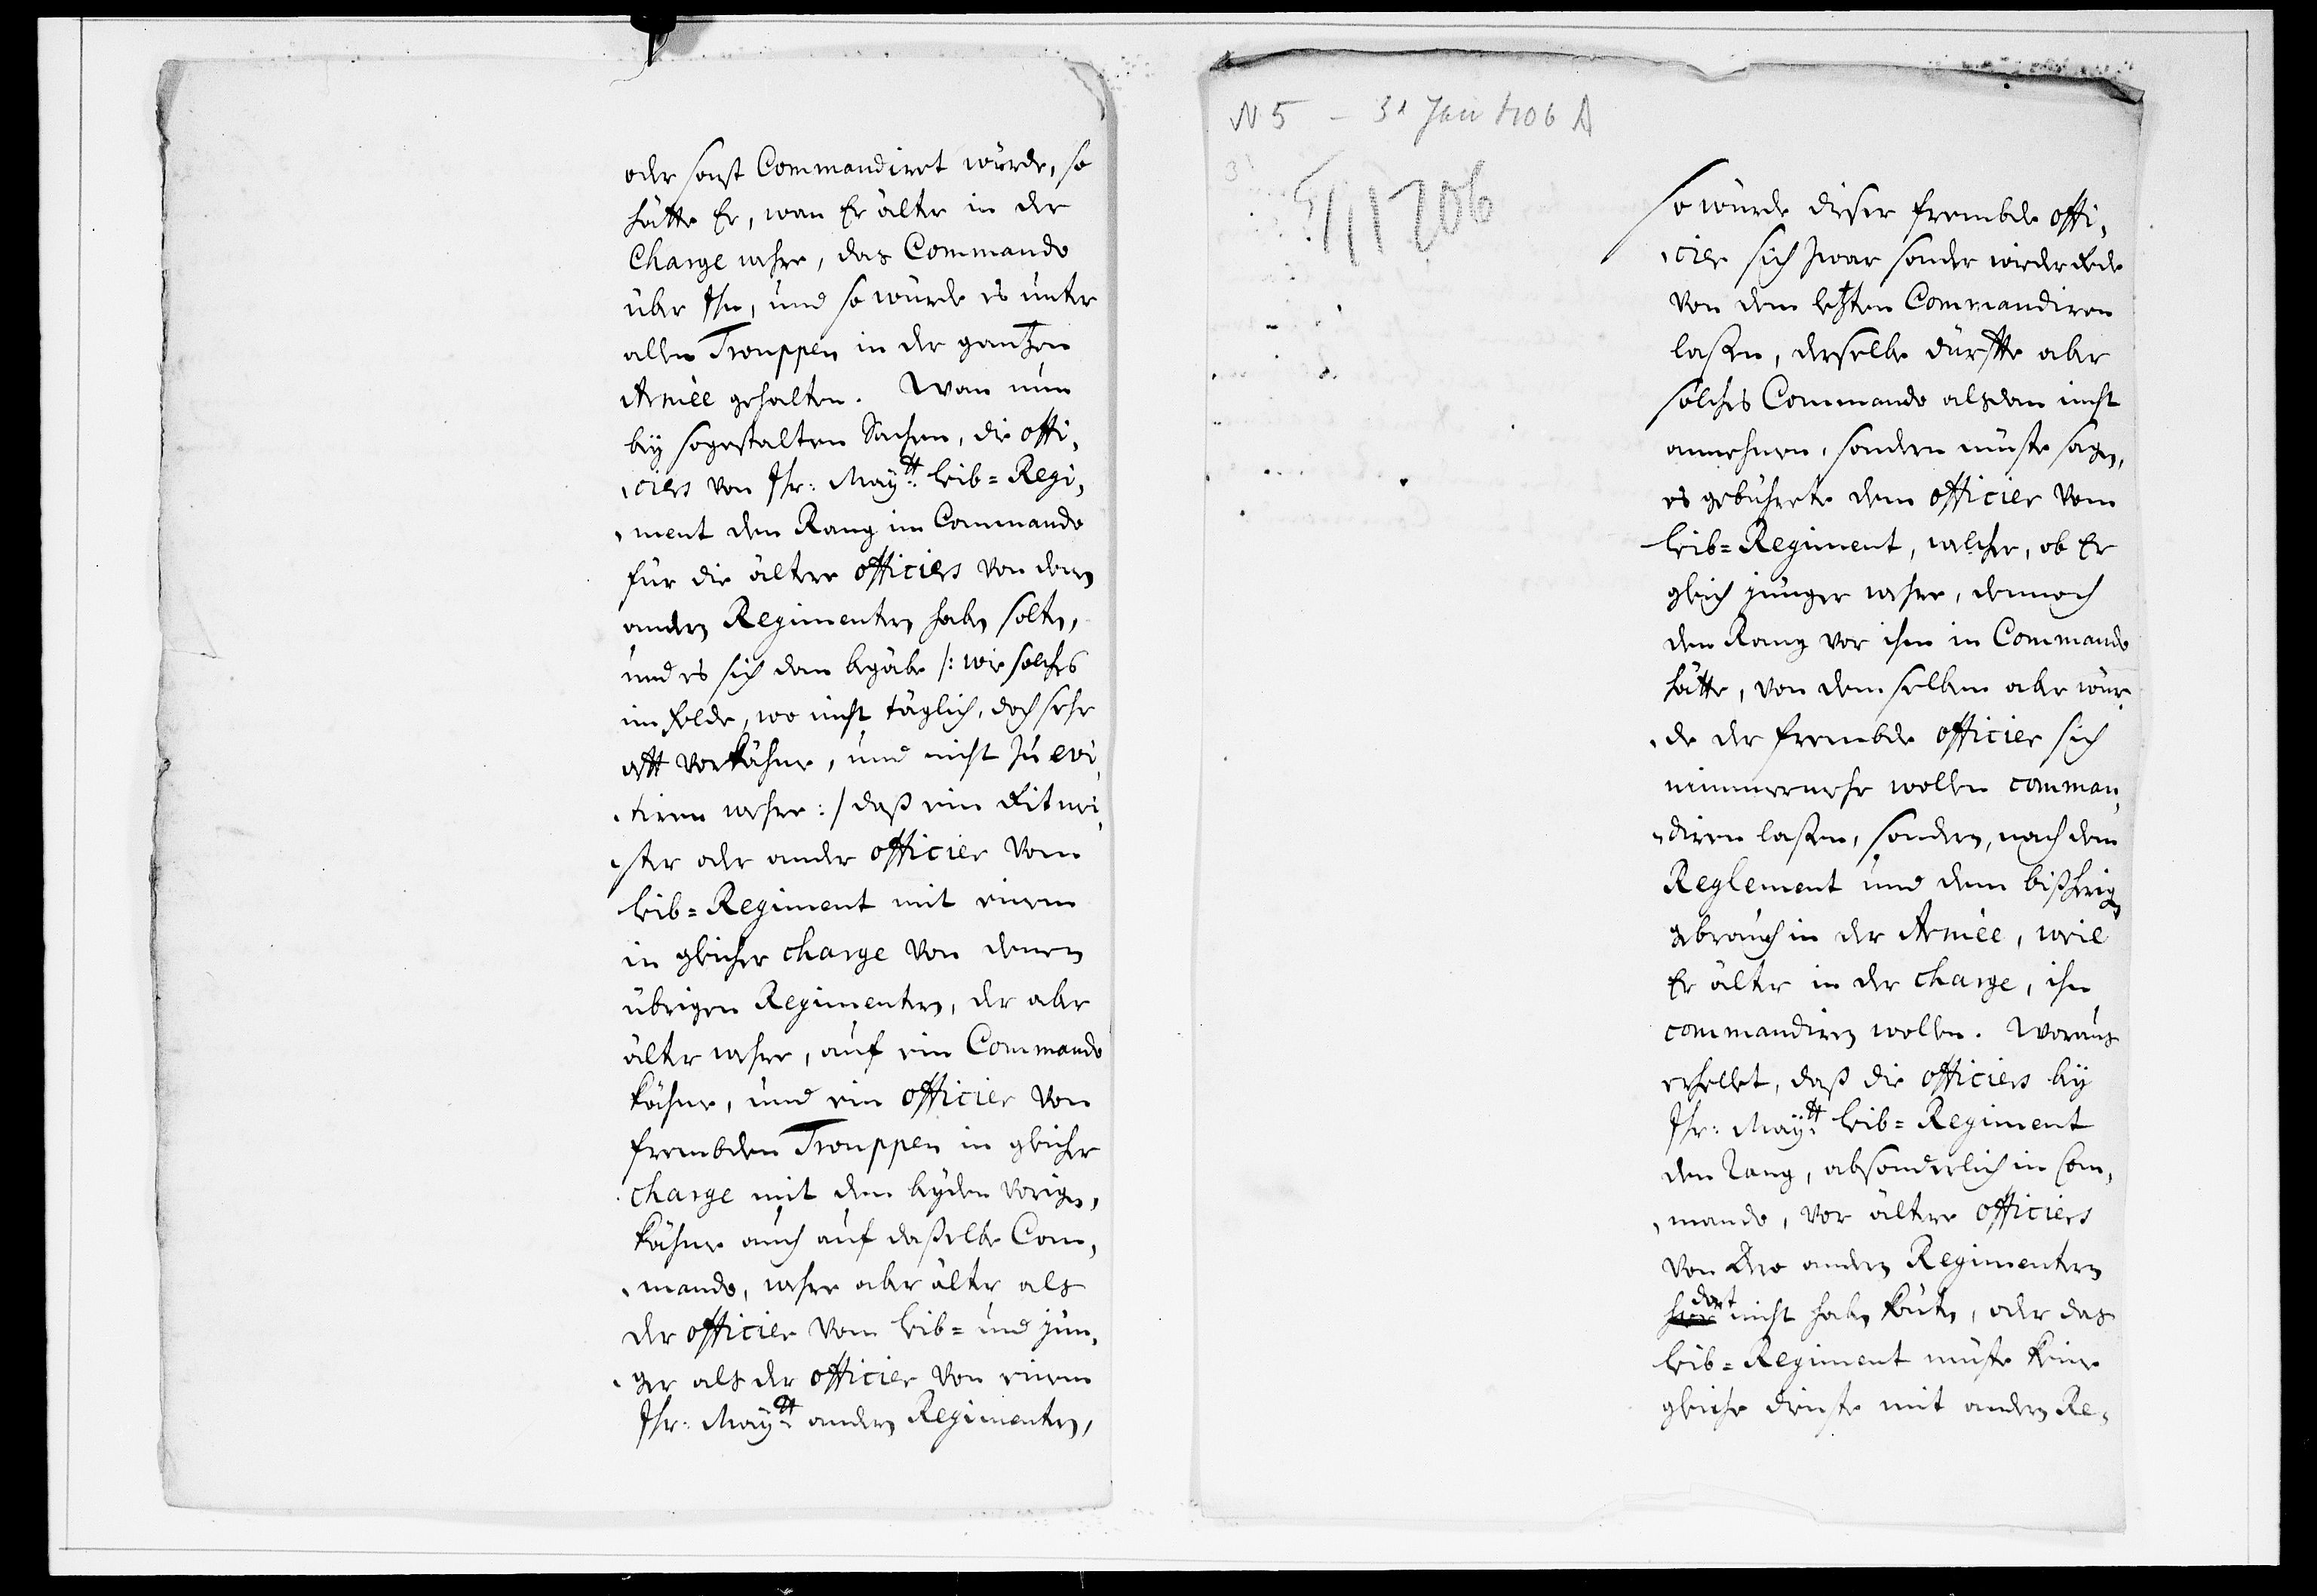 oder sonst Commandiret würde, so
hätte Er, wan Er älter in der
Charge wehre, das Commando
über Ihn, und so würde es unter
allen Trouppen in der gantzen
Armèe gehalten. Wan nun
bey sogestalten Sachen, die offi-
ciers von Ihr: Maytt: leib=Regi-
ment den Rang im Commando
für die ältere officiers von denen
andern Regimentern haben solten,
und es sich dan begäbe /: wie solches
im Felde, wo nicht täglich, doch sehr
offt vorkähme, und nicht zu evi-
tiren wehre :/ daß ein Ritmei-
ster oder ander officier vom
leib=Regiment mit einem
in gleicher charge von denen
übrigen Regimentern, der aber
älter wehre, auf ein Commando
kähme, und ein officier von
frembden Trouppen in gleicher
charge mit den beyden vorigen,
kähme auch auf daßelbe Com-
mando, wehre aber älter als
der officier vom leib= und jün-
ger als der officier von einem
Ihr: Maytt: andern Regimentern,
N 5 - 31 Jan 1706 A
31/1 1706
so würde dieser frembde offi-
cier sich zwar sonder wiederRede
von dem letzten Commandiren
laßen, derselbe dürffte aber
solches Commando alsdan nicht
annehmen, sondern müste sagen,
es gebührete dem officier vom
leib=Regiment, welcher, ob Er
gleich jünger wehre, dennoch
den Rang vor ihm in Commando
hätte, von demselben aber wür-
de der frembde officier sich
nimmermehr wollen comman-
diren laßen, sondern, nach dem
Reglement und dem bißherigen
gebrauch in der Armèe, weil
Er älter in der charge, ihn
commandiren wollen. Woraus
erhellet, daß die officiers bey
Ihr: Maytt: leib=Regiment
den Rang, absonderlich in Com-
mando, vor ältere officiers
von Dero andern Regimentern
dort
nicht haben könten, oder das
leib=Regiment müste keine
gleiche dienste mit andern Re-